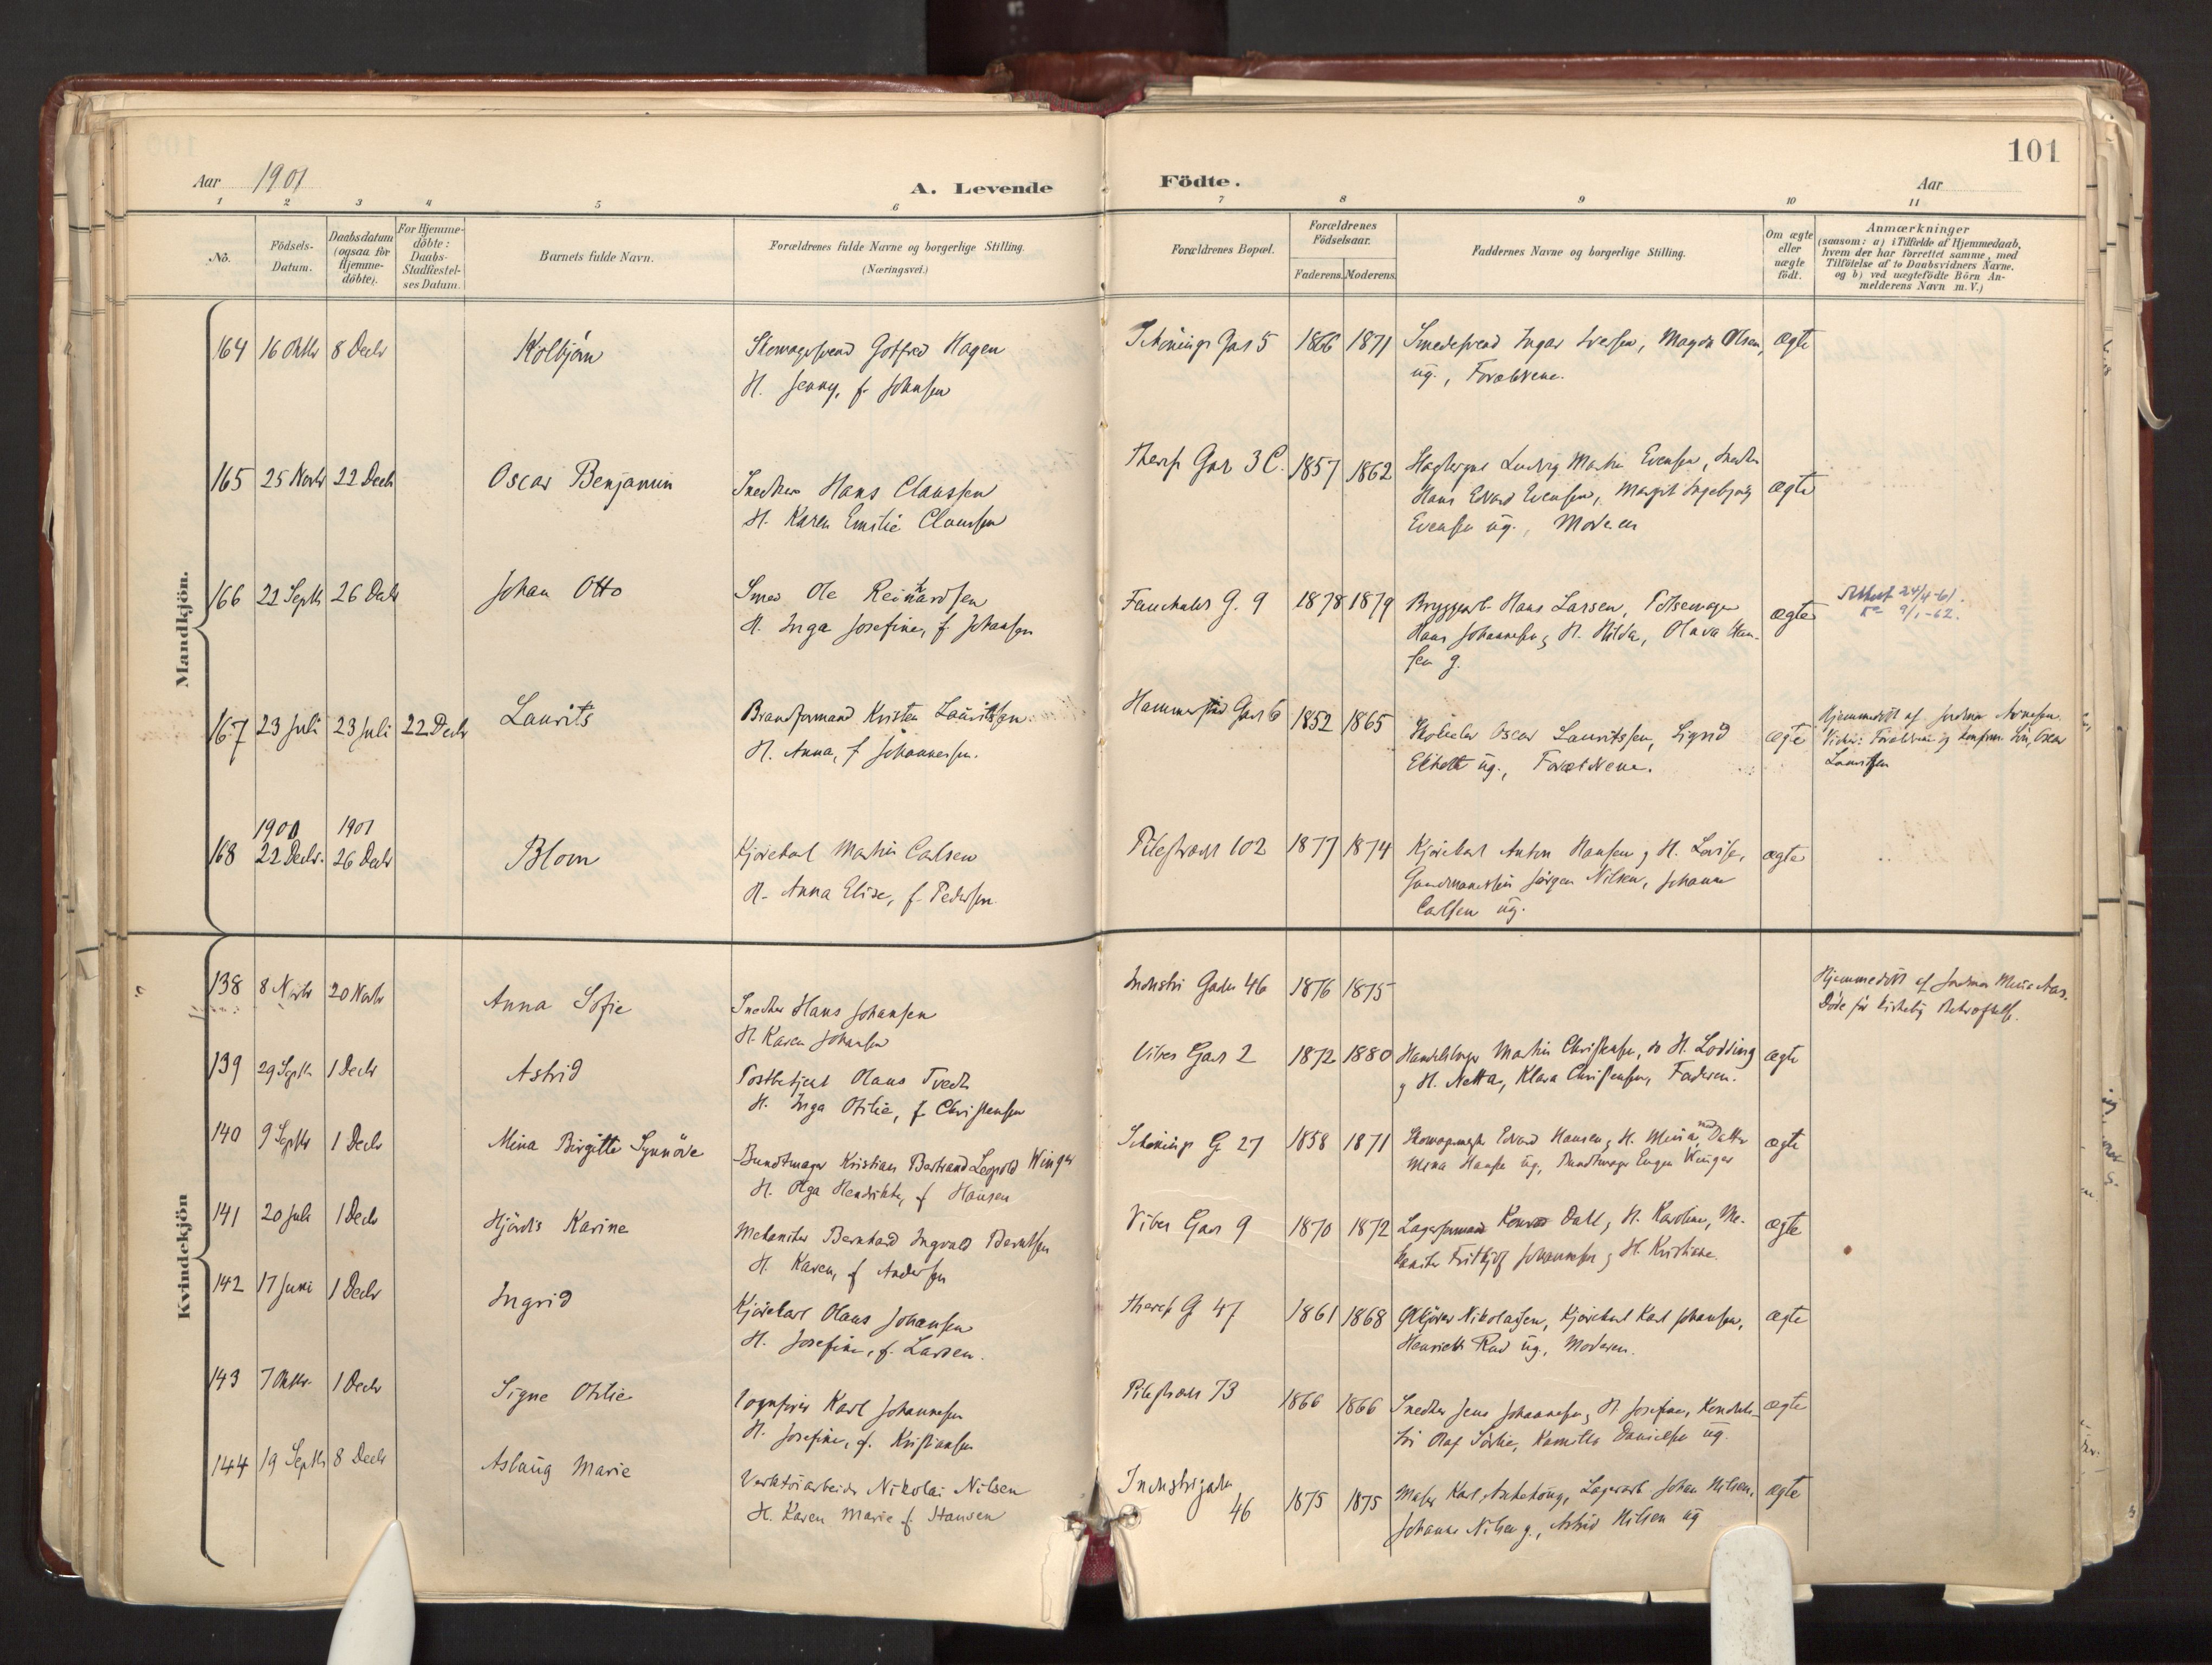 101
Aar 1901
A. Levende Födte.
Aar
1 2 3 4 5 6 7 8 9 10 11
No.
Födsels-Datum.
Daabsdatum (ogsaa for Hjemmedöbte).
For Hjemmedöbte: Daabs-Stadfæstelses Datum.
Barnets fulde Navn.
Forældrenes fulde Navne og borgerlige Stilling.
(Næringsvei.)
Forældrenes Bopæl.
Forældrenes Födselsaar.
Faderens. Moderens.
Faddernes Navne og borgerlige Stilling.
Om ægte eller uægte födt.
Anmærkninger
(saasom: a) i Tilfælde af Hjemmedaab, hvem der har forrettet samme, med Tilföielse af to Daabsvidners Navne, og b) ved uægtefödte Börn Anmelderens Navn m. V.)
Mandkjön.
164 16 Oktbr 8 Decbr Kolbjörn Skomagersvend Gotfred Hagen
H. Jenny, f. Johnsen
Schönings Gas 5 1866 1871 Smedesvend Ingar Iversen, Magda Olsen, ægte
ug., Forældrene.
165 25 Novbr 22 Decbr Oscar Benjamin Snedker Hans Claussen
H. Karen Emilie Claussen
Theres Gas 3 C. 1857 1862 Ludvig Martin Evensen, Snedker
Hans Edvard Evensen, Margit Ingebjørg ægte
Evensen ug., Moderen
166 22 Septbr 26 Decbr Johan Otto Smed Ole Reinhardsen
H. Inga Josefine, f. Johansen
Fauchalds G. 9 1878 1879 Bryggearb. Hans Larsen, Pølsemager ægte
Hans Johannesen, H. Hilda, Olava Han-
sen g.
Attest 24/4-61.
9/1-62.
167 23 Juli 23 Juli 22 Decbr Laurits Brandformand Kristen Lauritssen.
H. Anna, f. Johannessen.
Hammerstad Gas 6 1852 1865 Skoleelev Oscar Lauritssen, Sigrid ægte
ug., Forældrene.
Hjemmedöbt af Jordmor Arnesen.
Vidner: Forældrene og Sön, Oscar
Lauritssen
168 1900 22 Decbr. 1901 26 Decbr Blom Kjörekarl Martin Carlsen
H. Anna Elise, f. Pedersen
Pilestræde 102 1877 1874 Kjörekarl Anton Hansen, H. Lovise, ægte
Jörgen Nilsen, Johanne
Carlsen ug.
Kvindekjön
138 8 Novbr 20 Novbr Anna Sofie Snedker Hans Johansen
H. Karen Johansen
Industri Gaden 46 1876 1875
Hjemmedöbt af Jordmor Mina Aas.
Döde för kirkelig Bekræftelse.
139 29 Septbr 1 Decbr Astrid Postbetjent Olaus Tvedt
H. Inga Otilie, f. Christensen
Vibes Gas 2 1872 1880 Martin Christensen, do H. Lodding ægte
g H. Netta, Klara Christensen, Faderen.
140 9 Septbr 1 Decbr Mina Birgitte Synnöve Bundtmager Kristian Bertrand Leopold Winger
H. Olga Hendrikke, f. Hansen
Schönings G 27 1858 1871 Skomagermester Edvard Hansen, H. Mina, med Datter ægte
Mina Hansen ug, Bundtmager Eugen Winger
141 20 Juli 1 Decbr Hjördis Karine Mekaniker Bernhard Ingvald Berntsen
H. Karen, f. Andersen
Vibes Gas 9 1870 1872 Lagerformand Konrad Dahl, H. Karoline, Me- ægte
kaniker Frithjof Johannesen, H. Kristiane.
142 17 Juni 1 Decbr Ingrid Kjörekarl Olaus Johansen
H. Josefine, f. Larsen.
Theres G 47 1861 1868 Ølkjører Nikolaysen, Kjörekarl Karl Johansen, ægte
Henriette Rud ug., Moderen.
143 7 Oktbr. 1 Decbr Signe Otilie Vognfører Karl Johannesen
H. Josefine, f. Kristiansen
Pilestræde 73 1866 1866 Snedker Jens Johannesen, H. Josefine, ægte
Olaf Sörlie, Kamilla Danielsen ug.
144 19 Septbr 8 Decbr Aslaug Marie Verktöiarbeider Nikolai Nilsen
H. Karen Marie f. Hansen
Industrigaden
46 1875 1875 Maler Karl, Lagerarb. Johan Nilsen, ægte
Johanne Nilsen g., Astrid Nilsen ug